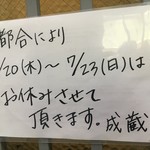 都合により
/20(木)〜7/23(日)は
お休みさせて
頂きます。成蔵